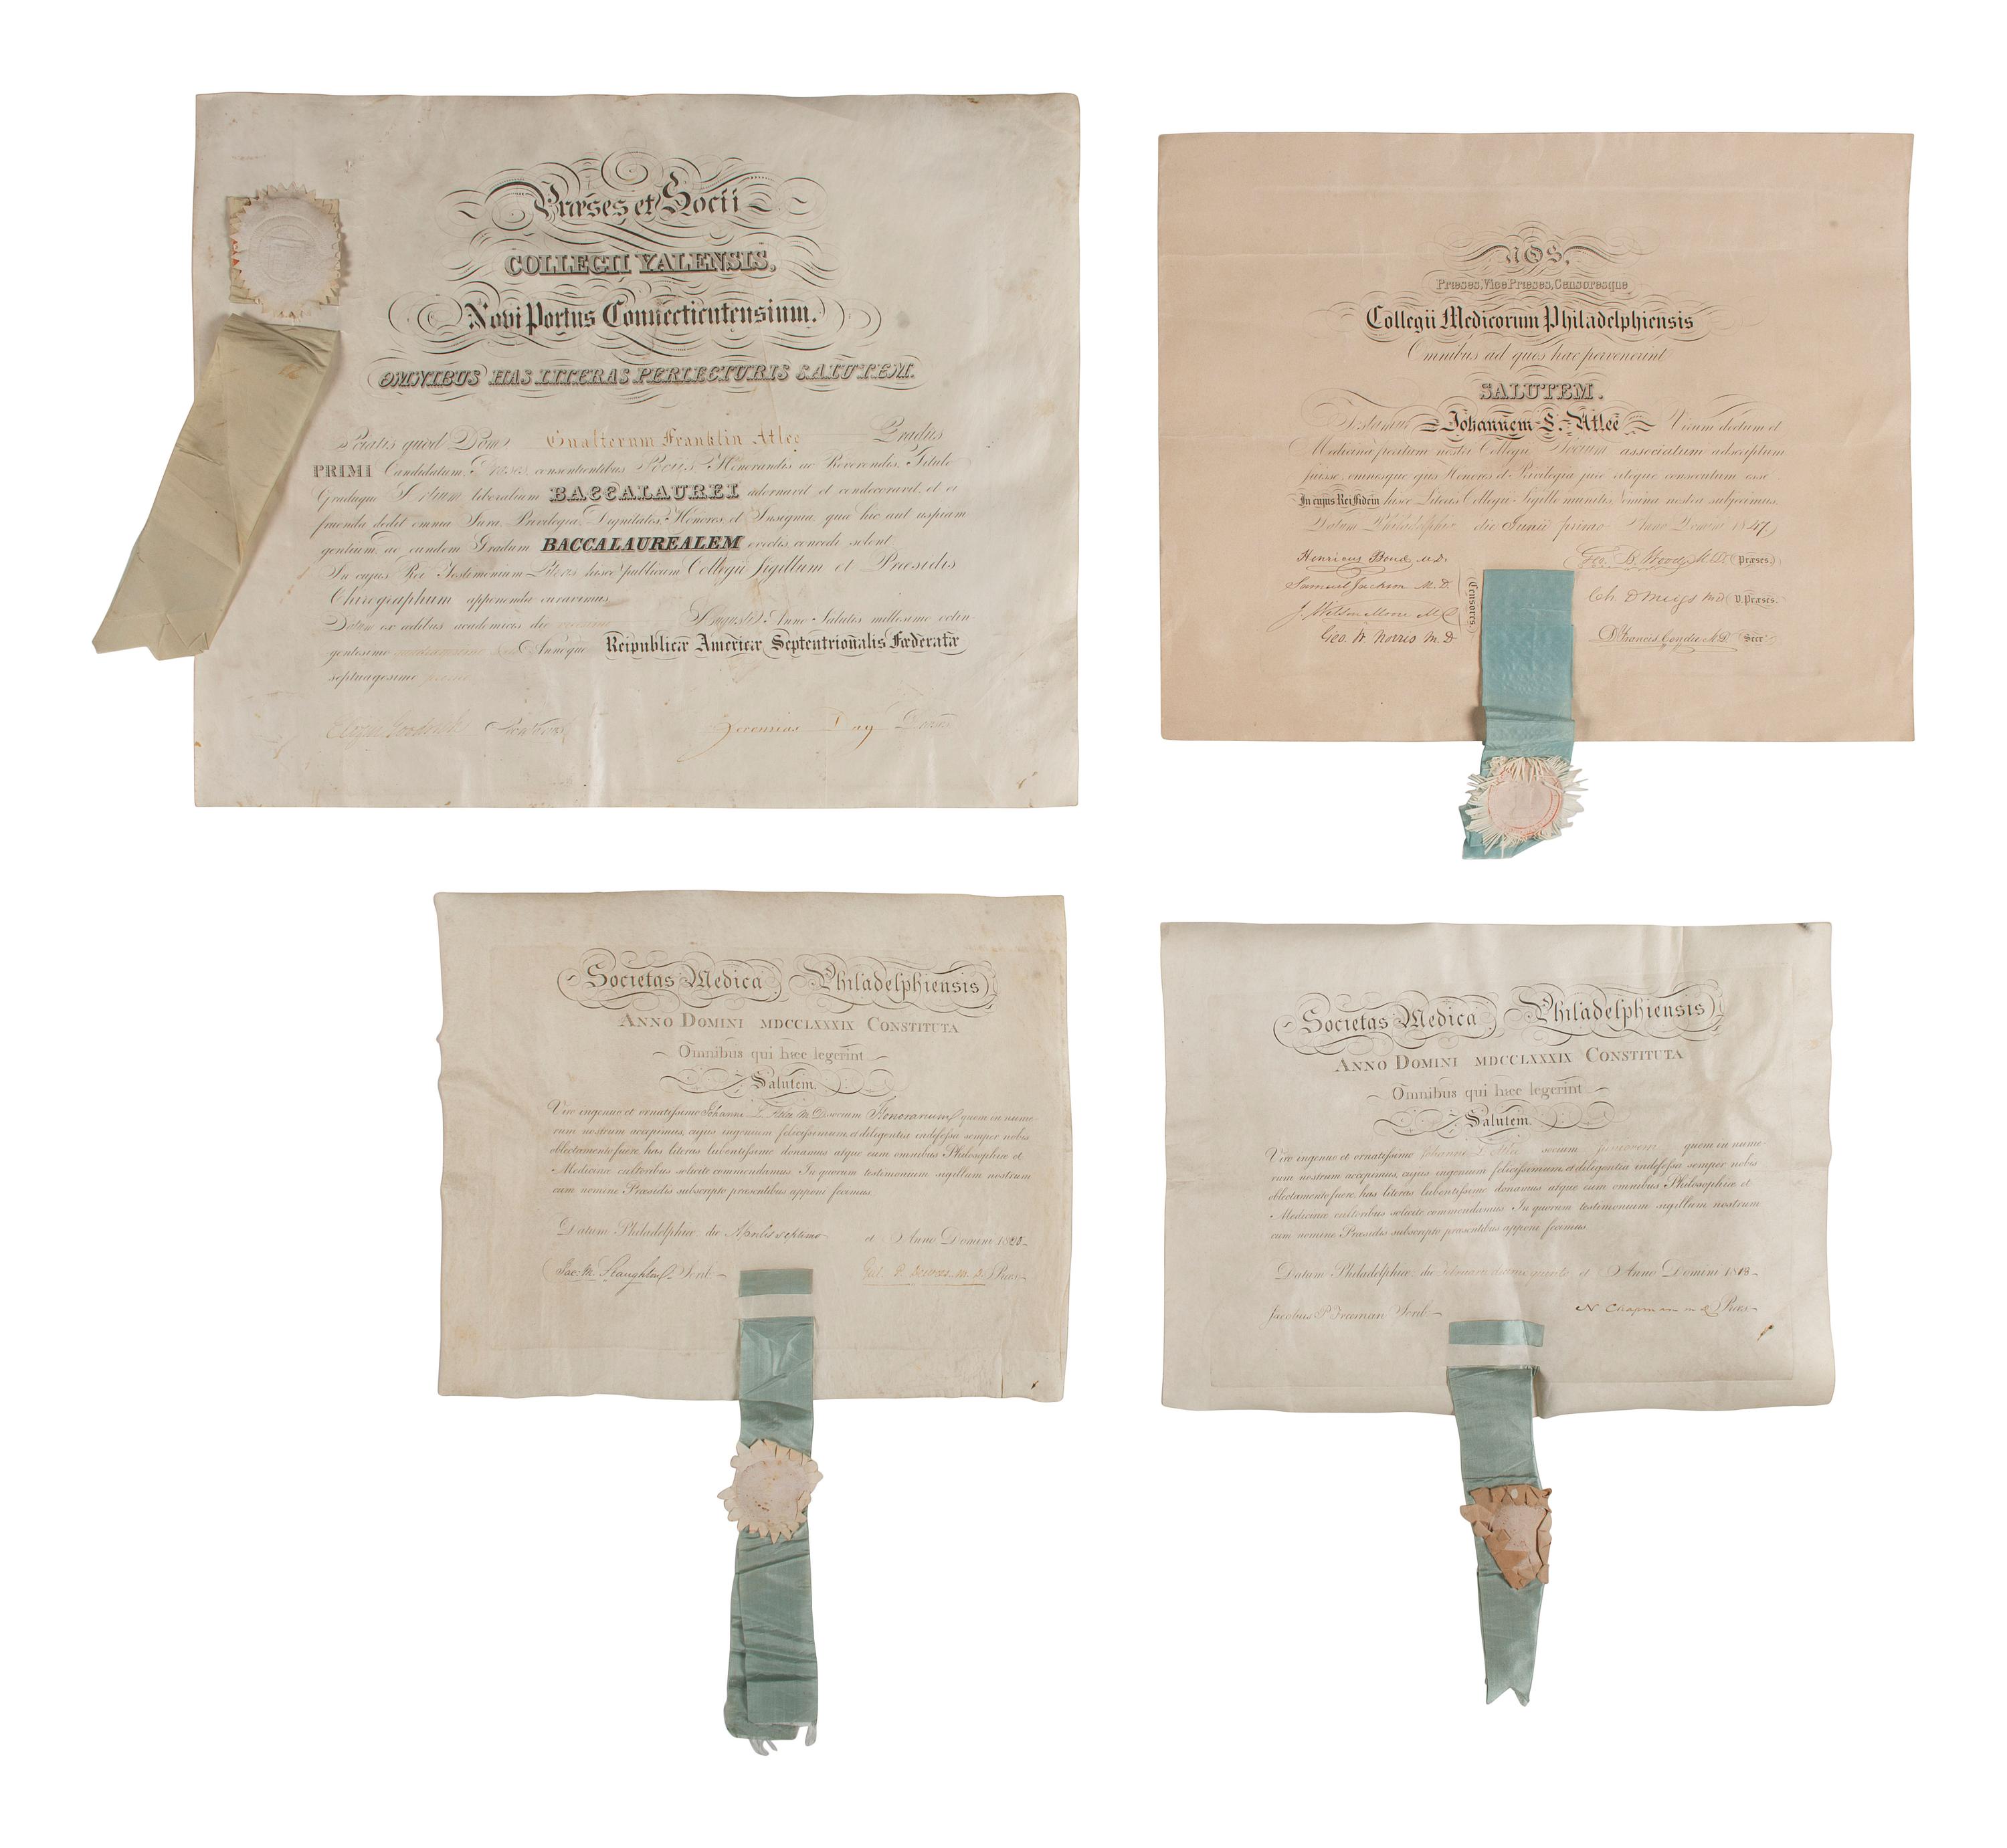 Præses et Socii
COLLEGII YALENSIS,
Novi Portus Connecticutensium.
OMNIBUS HAS LITERAS PERLECTURIS SALUTEM.
Sciatis quod Dom. Gualterum Franklin Atlee Gradus
PRIMI Candidatum, Præses, consentientibus Sociis Honorandis ac Reverendis, Titulo
Graduque Artium liberalium BACCALAUREI adornavit et condecoravit, et ei
fruenda dedit omnia Jura, Privilegia, Dignitates, Honores, et Insignia, quæ hic aut uspiam
gentium, ac eundem Gradum BACCALAUREALEM evectis, concedi solent.
In cujus Rei Testimonium Literis hisce publicum Collegii Sigillum et Præsidis
Chirographum apponenda curavimus.
Datum ex ædibus academicis die Augusti Anno Salutis millesimo octin-
gentesimo Annoque Reipublicæ Americæ Septentrionalis Fœderatæ
septuagesimo
Jeremias Day
NOS,
Præses, Vice Præses, Censoresque
Collegii Medicorum Philadelphiensis
Omnibus ad quos hæc pervenerint
SALUTEM.
Testamur Johannem S. Atleé Virum doctum et
Medicinæ peritum nostri Collegii Socium associatum adscriptum
fuisse, omnesque ejus Honores et Privilegia
In cujus Rei Fidem hisce Literis Collegii Sigillo munitis, Nomina nostra subjecimus,
Datum Philadelphiæ die Junii primo Anno Domini 1847
Henricus Bond M.D.
Samuel Jackson M.D.
J. Wilson Moore M.D.
Geo. W. Norris M.D
Censores.
Geo. B. Wood M.D. Præses.
Ch. D Meigs M.D V. Præses.
D. Francis Condie M.D. Secr.
Societas Medica Philadelphiensis
ANNO DOMINI MDCCLXXXIX CONSTITUTA
Omnibus qui hæc legerint
Salutem.
Viro ingenuo et ornatissimo Johanni L. Atlee M.D. socium Honorarium quem in nume-
rum nostrum accepimus, cujus ingenium felicissimum, et diligentia indefessa semper nobis
oblectamento fuere, has literas lubentissime donamus atque eum omnibus Philosophiæ et
Medicinæ cultoribus solicite commendamus. In quorum testimonium sigillum nostrum
cum nomine Præsidis subscripto præsentibus apponi fecimus.
Datum Philadelphiæ die Aprilis septimo et Anno Domini 1820
Jac: M. Staughton Scrib. Præs.
Societas Medica Philadelphiensis
ANNO DOMINI MDCCLXXXIX CONSTITUTA
Omnibus qui hæc legerint
Salutem.
Viro ingenuo et ornatissimo Johanni L. Atlee socium juniorem quem in nume-
rum nostrum accepimus, cujus ingenium felicissimum, et diligentia indefessa semper nobis
oblectamento fuere, has literas lubentissime donamus atque eum omnibus Philosophiæ et
Medicinæ cultoribus solicite commendamus. In quorum testimonium sigillum nostrum
cum nomine Præsidis subscripto præsentibus apponi fecimus.
Datum Philadelphiæ die et Anno Domini 1818
Jacobus P Freeman Scrib. N Chapman m d Præs.